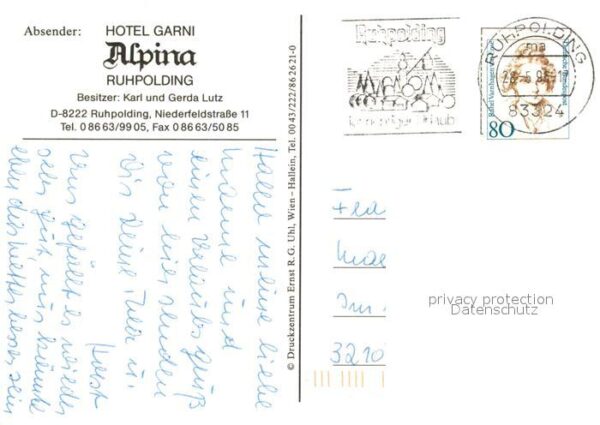 Absender: HOTEL GARNI
Alpina
RUHPOLDING
Besitzer: Karl und Gerda Lutz
D-8222 Ruhpolding, Niederfeldstraße 11
Tel. 0 86 63/99 05, Fax 0 86 63/50 85
Hallo meine liebe
Mama und
einen Urlaubsgruß
von hier senden
Dir Deine Thea u.
Horst
Uns gefällt es wieder
sehr gut, nur könnte
eben das Wetter besser sein
© Druckzentrum Ernst R. G. Uhl, Wien - Hallein, Tel. 00 43/222/86 26 21-0
Ruhpolding
Urlaub
RUHPOLDING
83324
80
Frau
3210
privacy protection
Datenschutz